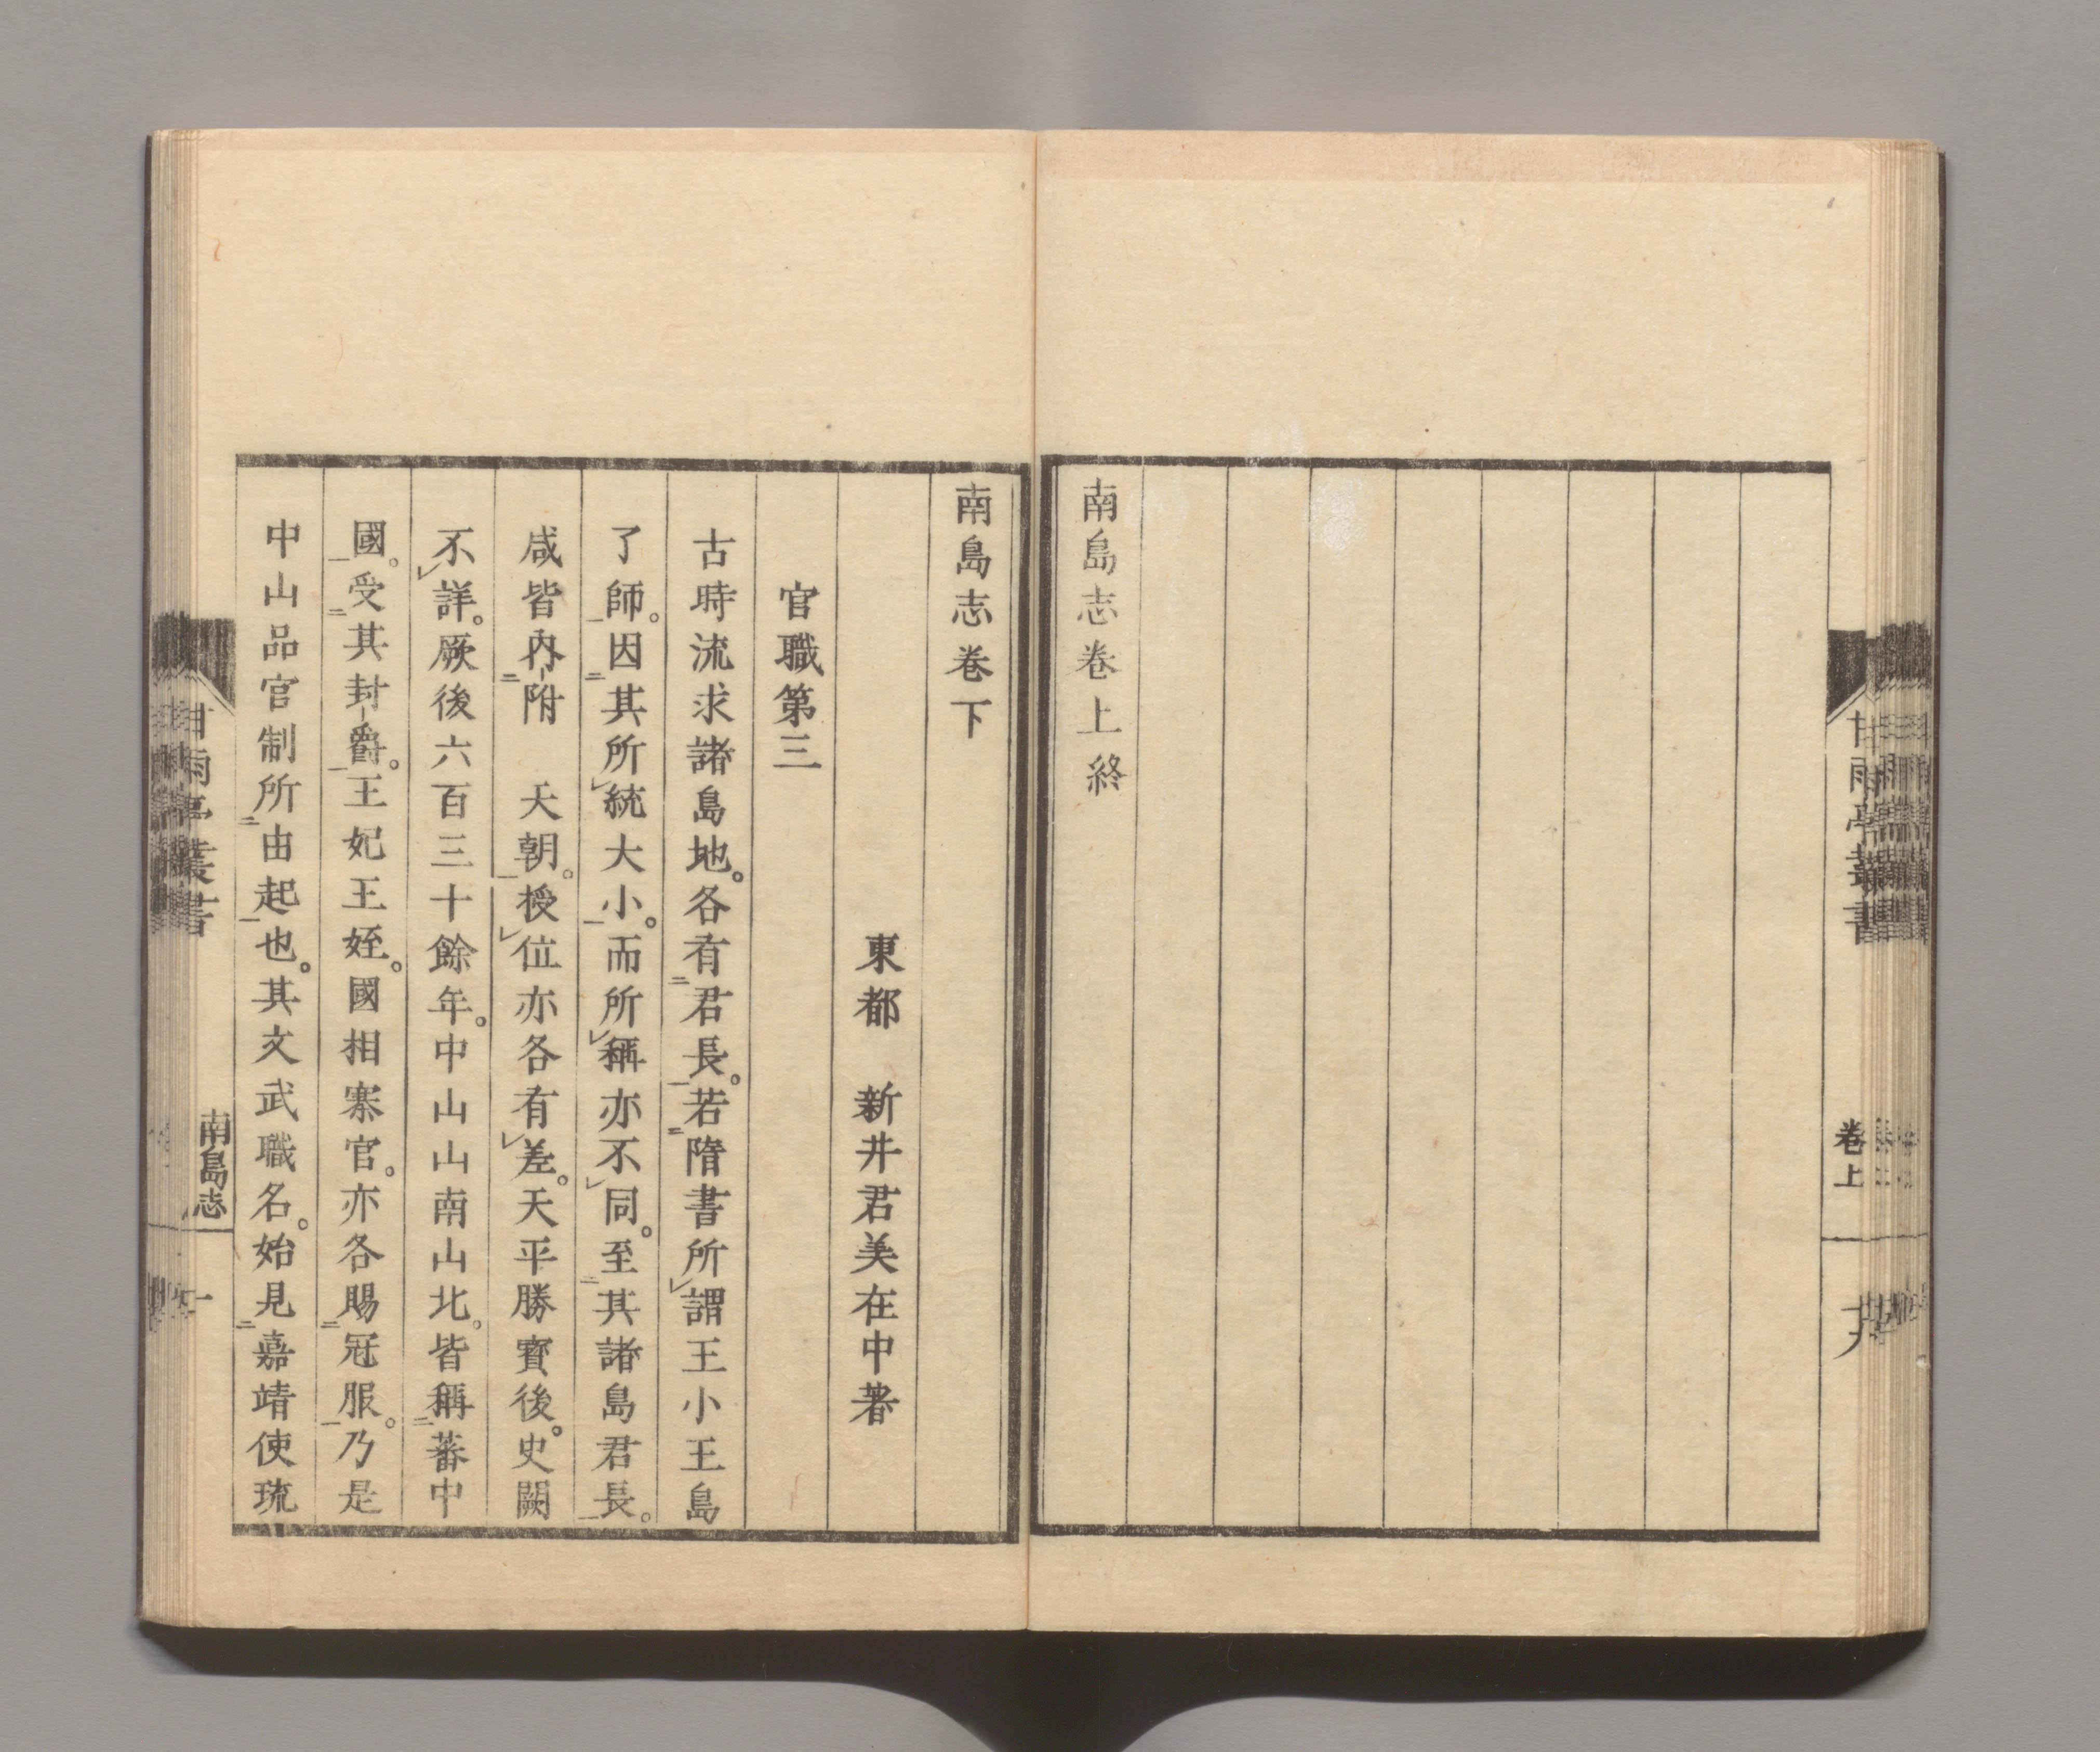 南島志卷上終
甘雨亭叢書
卷上
南島志卷下
東都　新井君美在中著
官職第三
古時流求諸島地。各有君長。若隋書所謂王小王島
了師。因其所統大小。而所稱亦不同。至其諸島君長。
咸皆內附　天朝。授位亦各有差。天平勝寶後。史闕
不詳。厥後六百三十餘年。中山山南山北。皆稱蕃中
國。受其封爵。王妃王姪。國相寨官。亦各賜冠服。乃是
中山品官制所由起也。其文武職名。始見嘉靖使琉
甘雨亭叢書
南島志
一